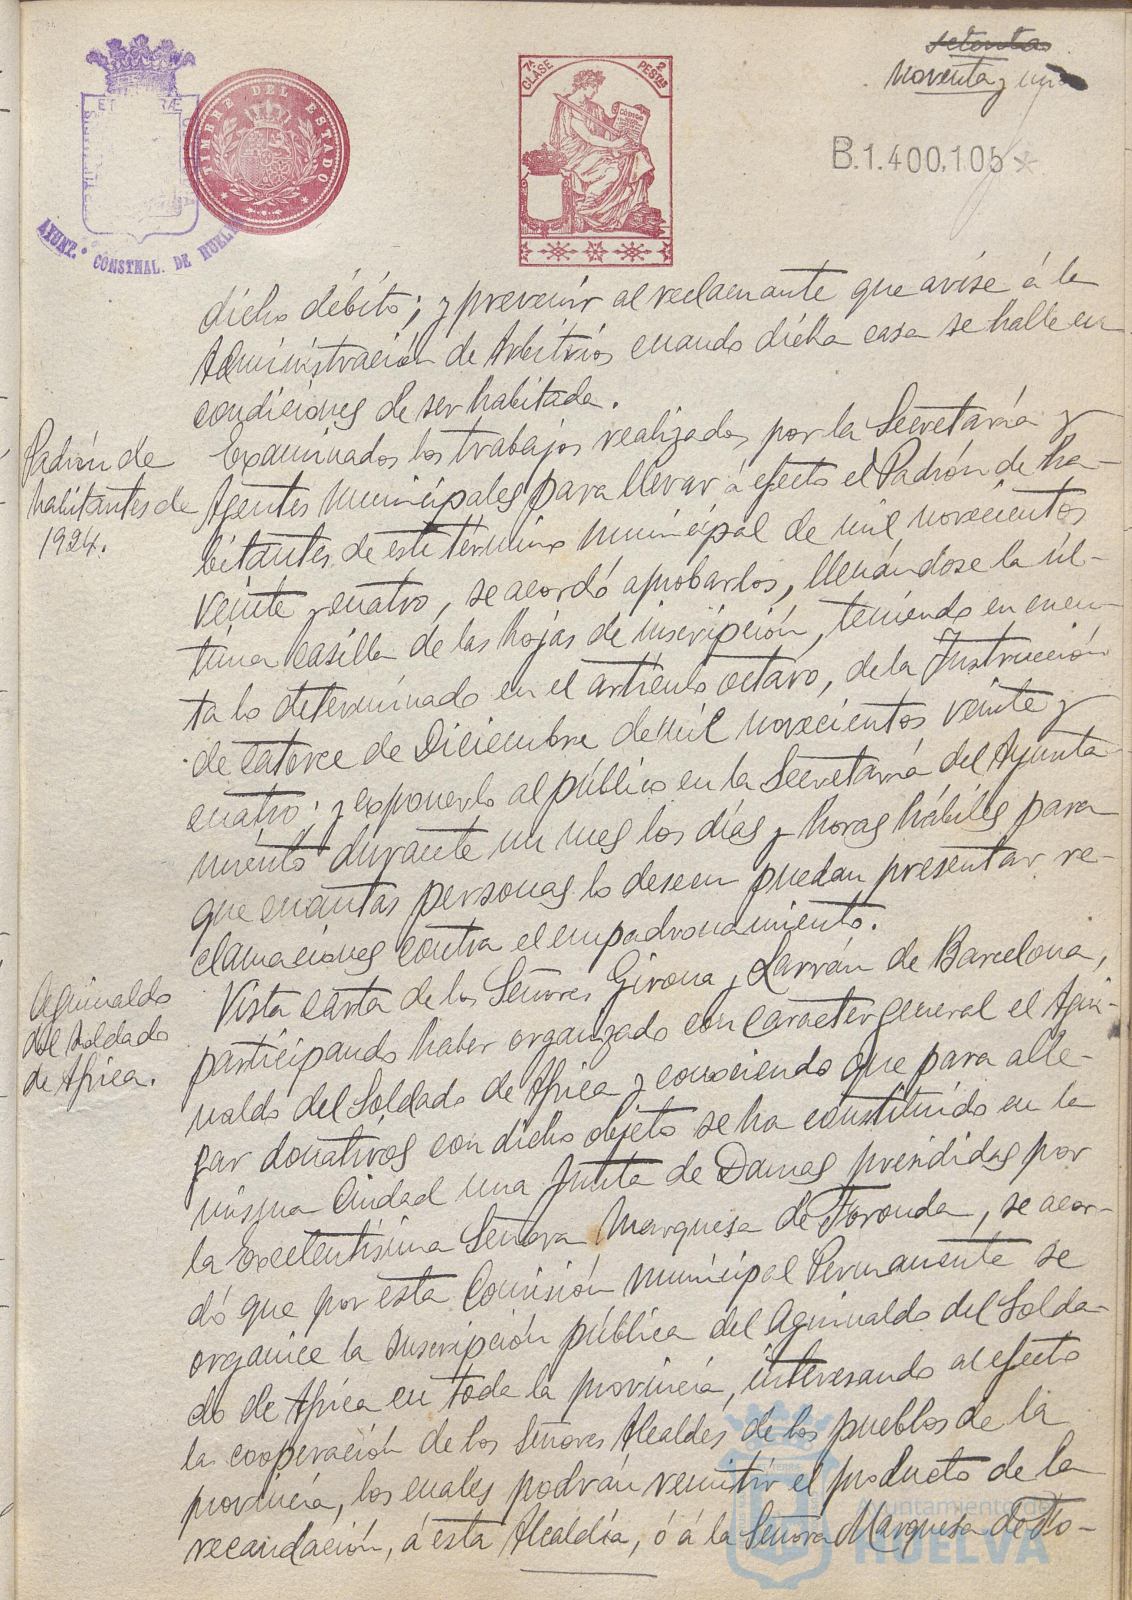 setenta
noventa y uno
7ª CLASE
2 PESTAS
CÓDIGO
TIMBRE DEL ESTADO
AYUNT. CONSTNAL. DE HUELVA
B.1.400.105*
dicho débito; y prevenir al reclamante que avise á la
Administración de Arbitrios cuando dicha casa se halle en
condiciones de ser habitada.
Padrón de
habitantes de
1924.
Examinados los trabajos realizados por la Secretaría y
Agentes municipales para llevar á efecto el Padrón de ha-
bitantes de este término municipal de mil novecientos
veinte y cuatro, se acordó aprobarlos, llenándose la úl-
tima casilla de las hojas de inscripción, teniendo en cuen-
ta lo determinado en el artículo octavo, de la Instrucción
de catorce de Diciembre de mil novecientos veinte y
cuatro; y exponerlo al público en la Secretaría del Ayunta-
miento durante un mes los días y horas hábiles para
que cuantas personas lo deseen puedan presentar re-
clamaciones contra el empadronamiento.
Aguinaldo
del Soldado
de Africa.
Vista carta de los Señores Girona y Larrán de Barcelona,
participando haber organizado con caracter general el Agui-
naldo del Soldado de Africa y conociendo que para alle-
gar donativos con dicho objeto se ha constituído en la
misma Ciudad una Junta de Damas presididas por
la Excelentísima Señora Marquesa de Foronda, se acor-
dó que por esta Comisión Municipal Permanente se
organice la suscripción pública del Aguinaldo del Solda-
do de Africa en toda la provincia, interesando al efecto
la cooperación de los Señores Alcaldes de los pueblos de la
provincia, los cuales podrán remitir el producto de la
recaudación, á esta Alcaldía, ó á la Señora Marquesa de Fo-
Ayuntamiento de
HUELVA